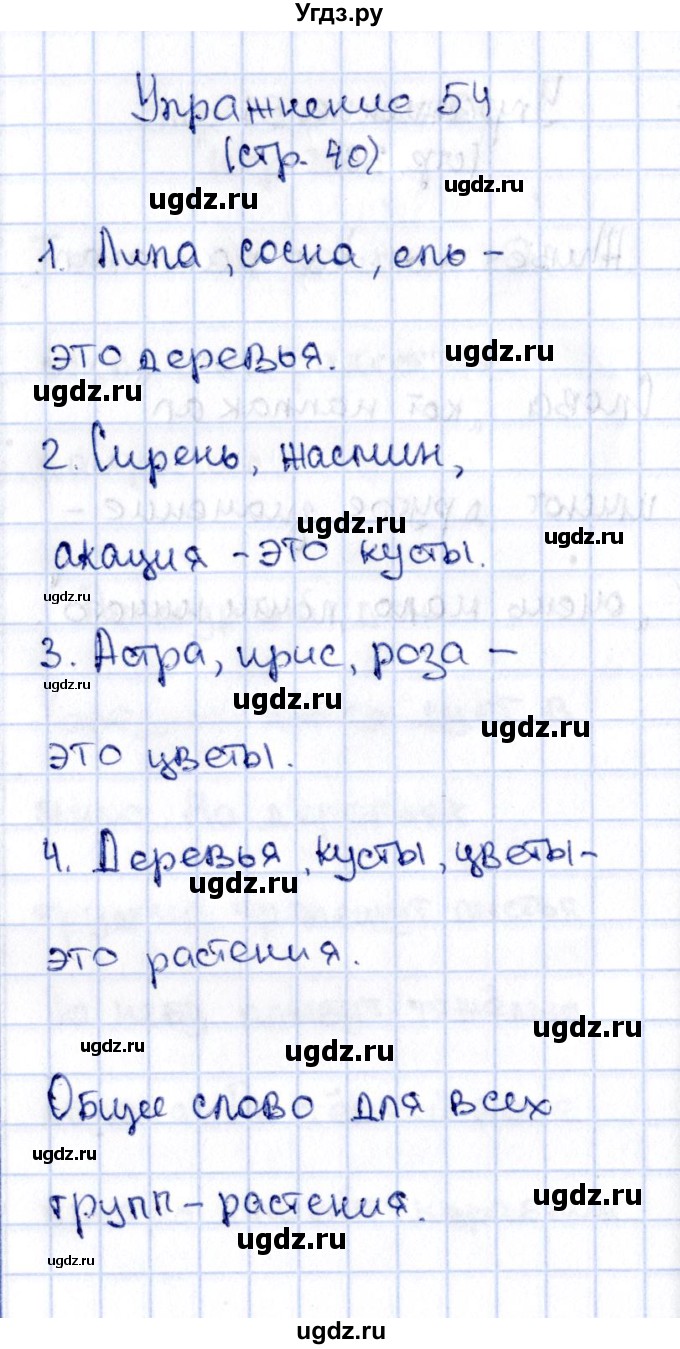 Угдз.ру
Упражнение 54
(стр. 40)
ugdz.ru
ugdz.ru
1. Липа, сосна, ель -
это деревья.
ugdz.ru
ugdz.ru
2. Сирень, жасмин,
ugdz.ru
ugdz.ru
акация - это кусты.
ugdz.ru
3. Астра, ирис, роза -
ugdz.ru
ugdz.ru
ugdz.ru
это цветы.
4. Деревья, кусты, цветы -
ugdz.ru
это растения.
ugdz.ru
ugdz.ru
ugdz.ru
Общее слово для всех
ugdz.ru
ugdz.ru
групп - растения.
ugdz.ru
ugdz.ru
ugdz.ru